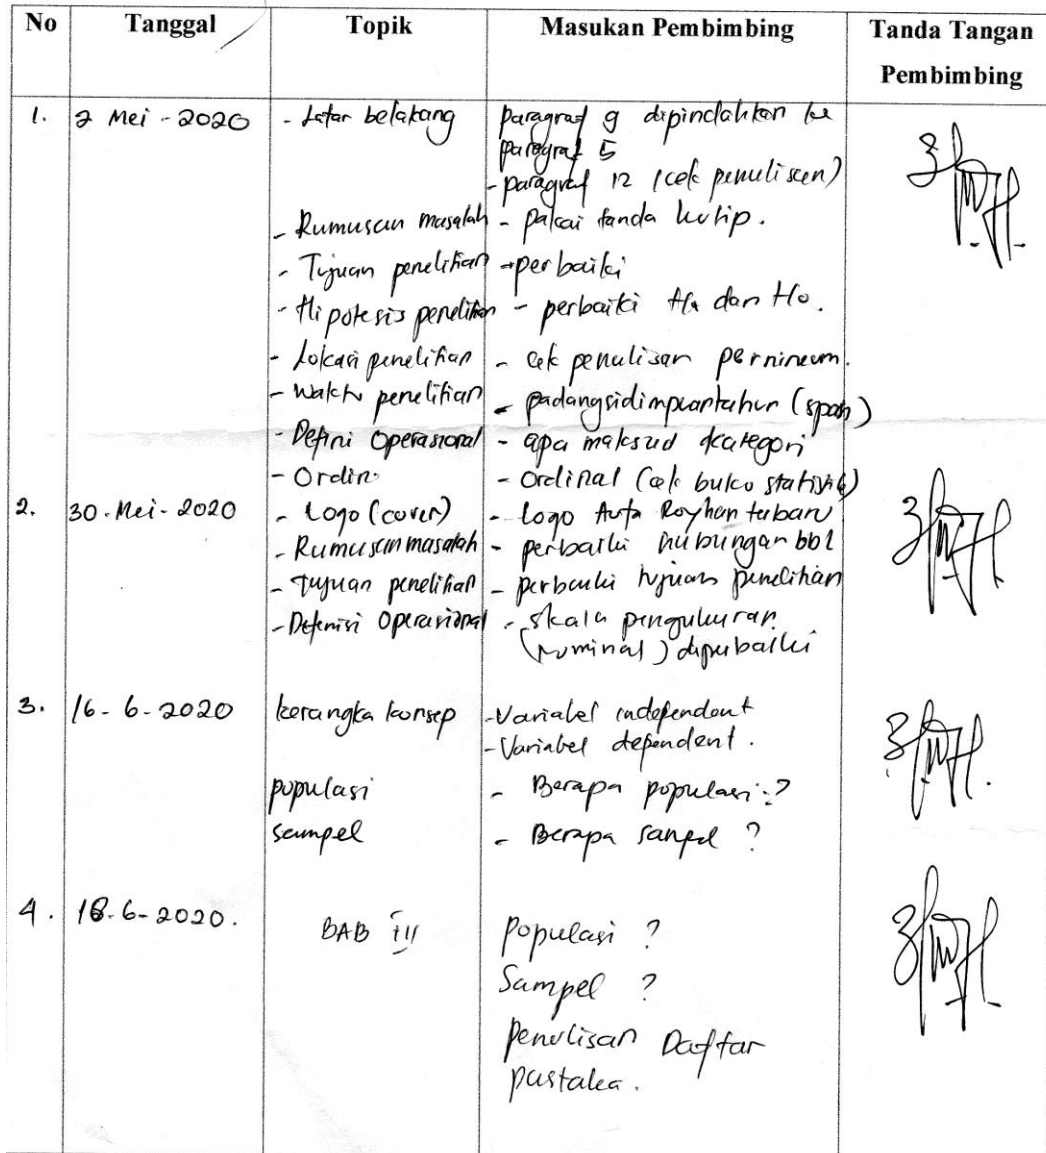 No Tanggal Topik Masukan Pembimbing Tanda Tangan
Pembimbing
1. 2 Mei - 2020 - Latar belakang paragraf 9 dipindahkan ke
paragraf 5
- paragraf 12 (cek penulisan)
- Rumusan masalah - pakai tanda kutip.
- Tujuan penelitian - perbaiki
- Hipotesis penelitian - perbaiki Ha dan Ho.
- Lokasi penelitian - cek penulisan
- Waktu penelitian - padangsidimpuantahun (spasi)
- Defini Operasional - apa maksud kategori
- Ordin - Ordinal (cek buku statistik)
2. 30 - Mei - 2020 - Logo (cover) - Logo Aufa Royhan terbaru
- Rumusan masalah - perbaiki hubungan bbl
- Tujuan penelitian - perbaiki tujuan penelitian
- Defenisi Operasional - skala pengukuran
(nominal) diperbaiki
3. 16 - 6 - 2020 kerangka konsep - Variabel independent
- Variabel dependent.
populasi - Berapa populasi?
sampel - Berapa sampel ?
4. 18 - 6 - 2020. BAB III Populasi ?
Sampel ?
penulisan Daftar
pustaka.